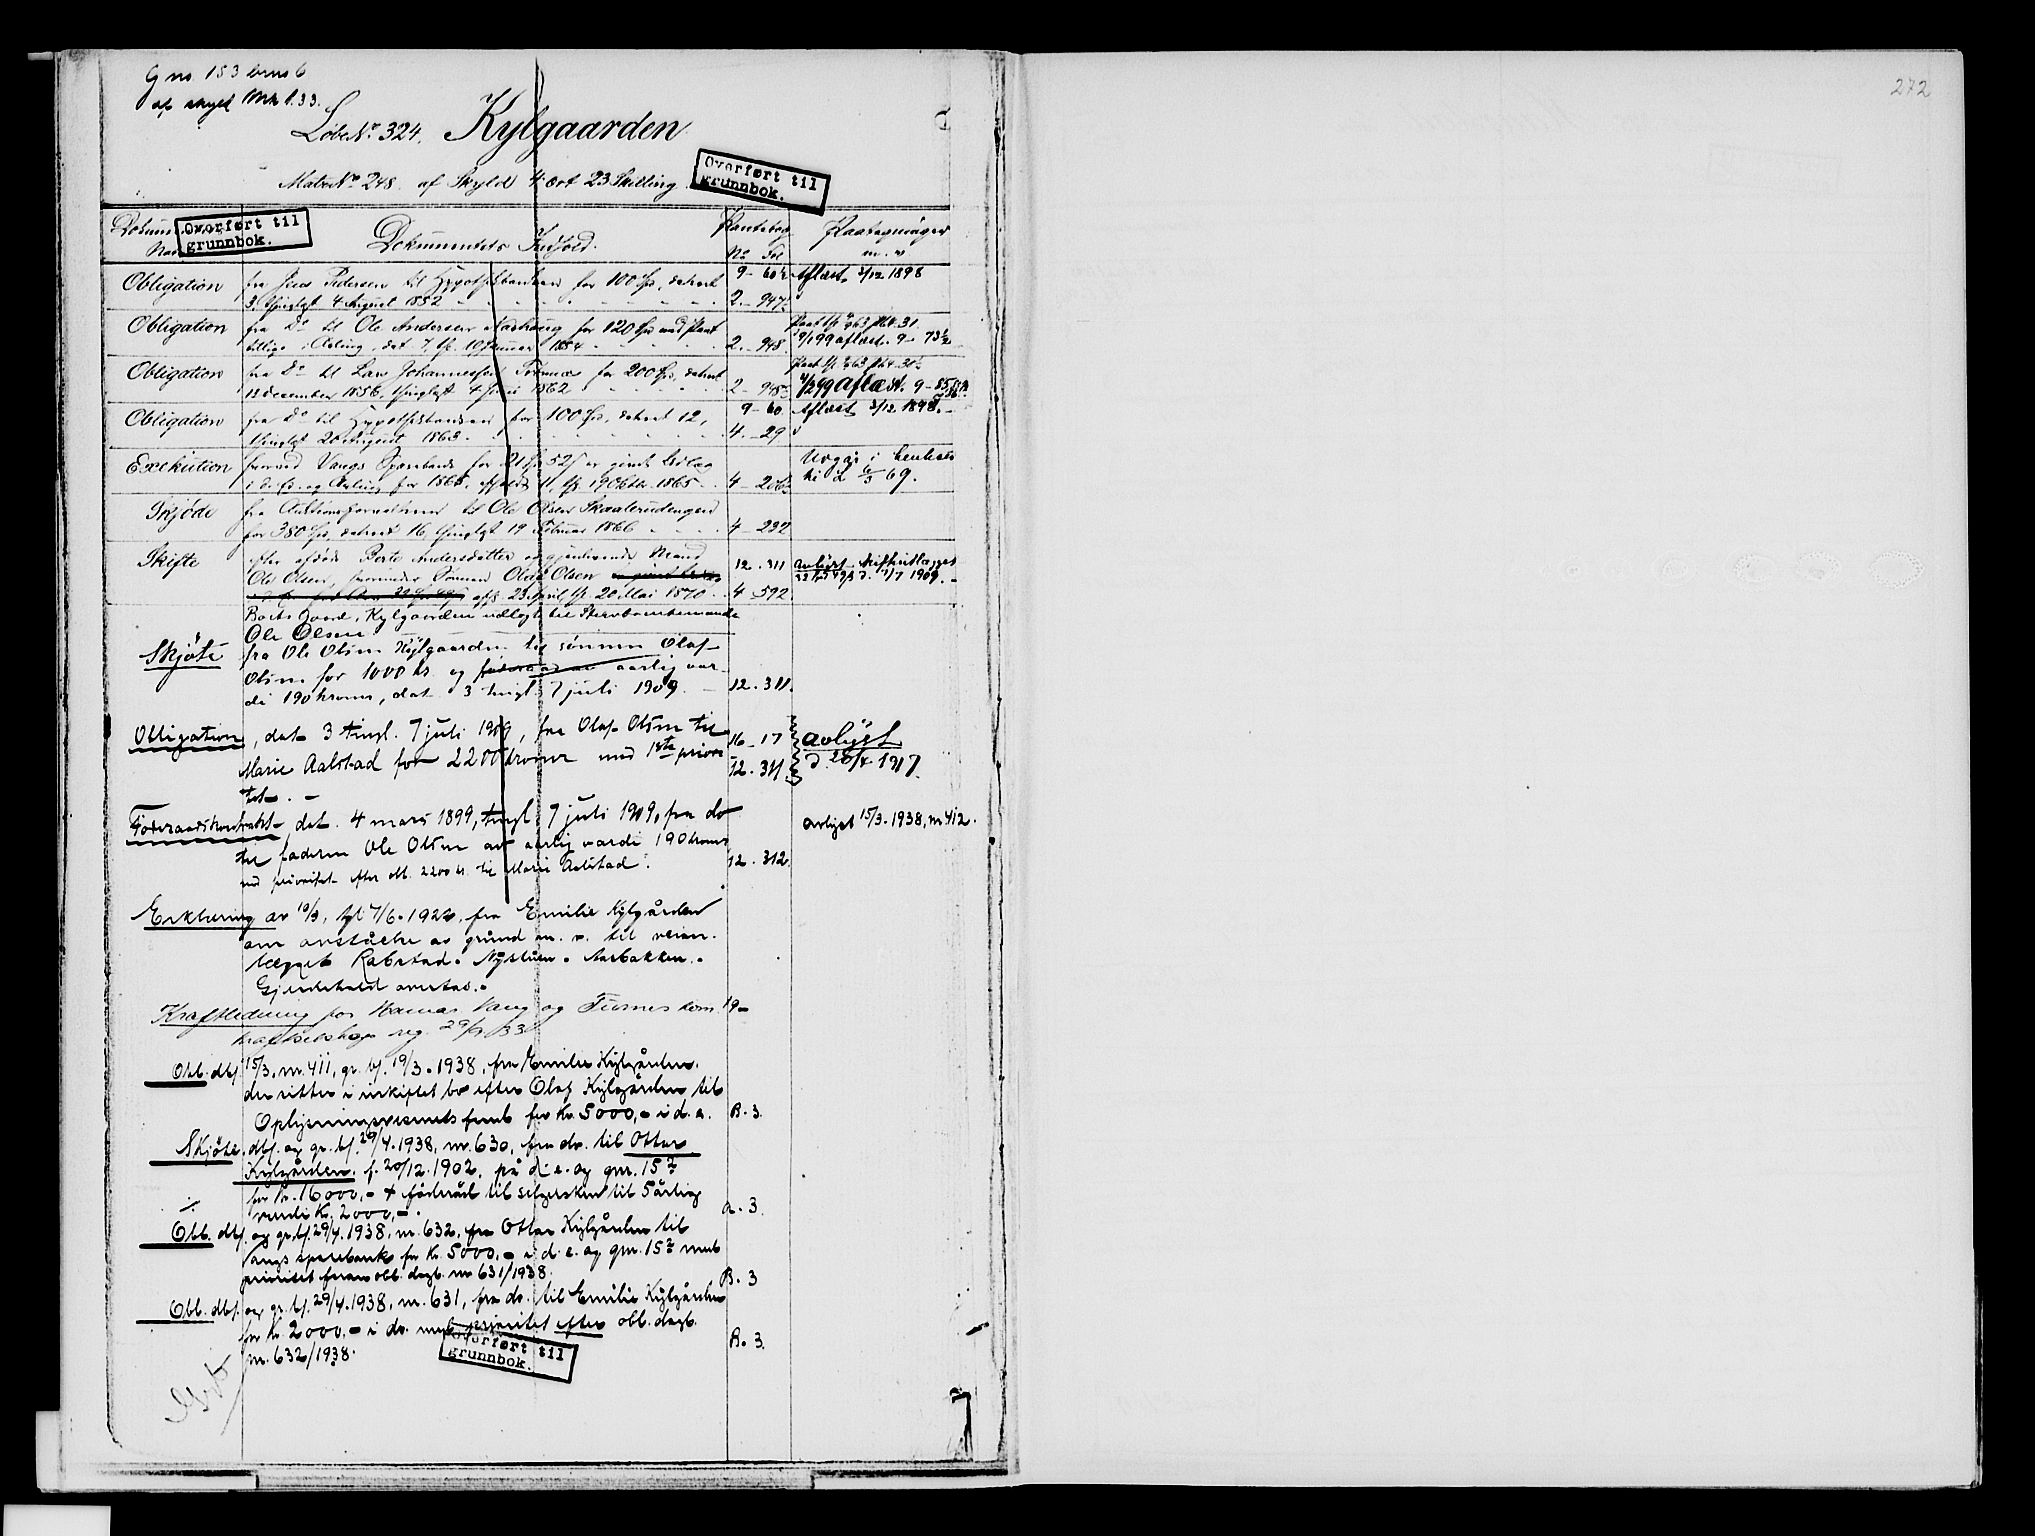 G no 153 bno 6
af skyld Mk 1.33.
LøbeNo 324. Kylgaarden
MatrNo 248. af Skyld 4 ort 23 Skilling
Overført til
grunnbok.
Overført til
grunnbok.
Dokumentets Indhold.
Pantebog
No Fol
Paategninger
m. v
Obligation fra Jens Pedersen til Hypothekbanken for 100 Spd, dateret 9 - 60 Aflæst 3/12 1898
3, thinglyst 4 August 1852 2. - 947
Obligation fra Do til Ole Andersen for 120 Spd med Pant
dat 7, th. 10 Januar 1854 2. - 948. aflæst. 9 - 73
Obligation fra Do til Lars Johannessen for 200 Spd, dateret
12 December 1856, thinglyst 4 Juni 1862 2 - 948 Aflæst. 9 -
Obligation fra Do til Hypothekbanken for 100 Spd, dateret 12, 9 - 60 Aflæst 3/12 1898. -
thinglyst 20 August 1863. 4. - 29
Exekution Vangs Sparebank for 21 Spd 52
for 1865, 11, th. 19 Oktbr. 1865 4 - 206 69.
Skjøde fra til Ole Olsen
for 380 Spd, dateret 16, thinglyst 19 Februar 1866 4 - 232
Skifte efter afdøde Berte Andersdatter og gjenlevende Mand 12. 311
Ole Olsen, Sønnen Oluf Olsen 7/7 1909. -
23 April, th. 20 Mai 1870 4 592
Kylgaarden udlagt til
Ole Olsen
Skjøte fra Ole Olsen Kylgaarden til sønnen Olaf
Olsen for 1000 kr. og aarlig vær-
di 190 kroner, dat 3 tingl. 7 juli 1909. - 12. 311.
Obligation, dat 3 tingl. 7 juli 1909, fra Olaf Olsen til 16 - 17 avlyst
Marie Aalstad for 2200 kroner med 1ste priori 12. 311 d. 20/4 1917.
tet. -
Føderaadskontrakt dat. 4 mars 1899, tingl. 7 juli 1909, fra do avlyst 15/3. 1938, nr 412.
til faderen Ole Olsen av aarlig værdi 190 kroner
med prioritet efter obl. 2200 kr. til Marie Aalstad. 12. 312.
Erklæring av 10/3, tgl 7/6. 1922, fra Emilie Kylgården
om avståelse av grund m. v. til veian-
lægget Rabstad. Nystuen. Aasbakken. -
Gjerdehold overtas. -
Kraftledning for Hamar Vang og Furnes kom. 19 -
kraftselskap reg. 29/9 33
Obl. dbf. 15/3. nr. 411, gr. bf. 19/3. 1938, fra Emilie Kylgården,
der sitter i uskiftet bo efter Olaf Kylgården til
Oplysningsvesenets fond for Kr. 5000,- i d. e. B. 3.
Skjøte, dbf. og gr. bf. 29/4. 1938, nr. 630, fra do. til Ottar
Kylgården, f. 20/12. 1902, på d. e. og gnr. 15
for kr. 16000,- + føderåd til selgersken til 5årlig
verdi kr. 2000,-. a. 3.
Obl. dbf. og gr. bf. 29/4. 1938, nr. 632, fra Ottar Kylgården til
Vangs sparebank for Kr. 5000,- i d. e. og gnr. 15 med
prioritet foran obl. dagb. nr 631/1938. B. 3
Obl. dbf. og gr. bf. 29/4. 1938, nr. 631, fra do. til Emilie Kylgården
for Kr. 2000,- i do. med prioritet efter obl. dagb.
nr. 632/1938. B. 3.
Overført til
grunnbok.
272